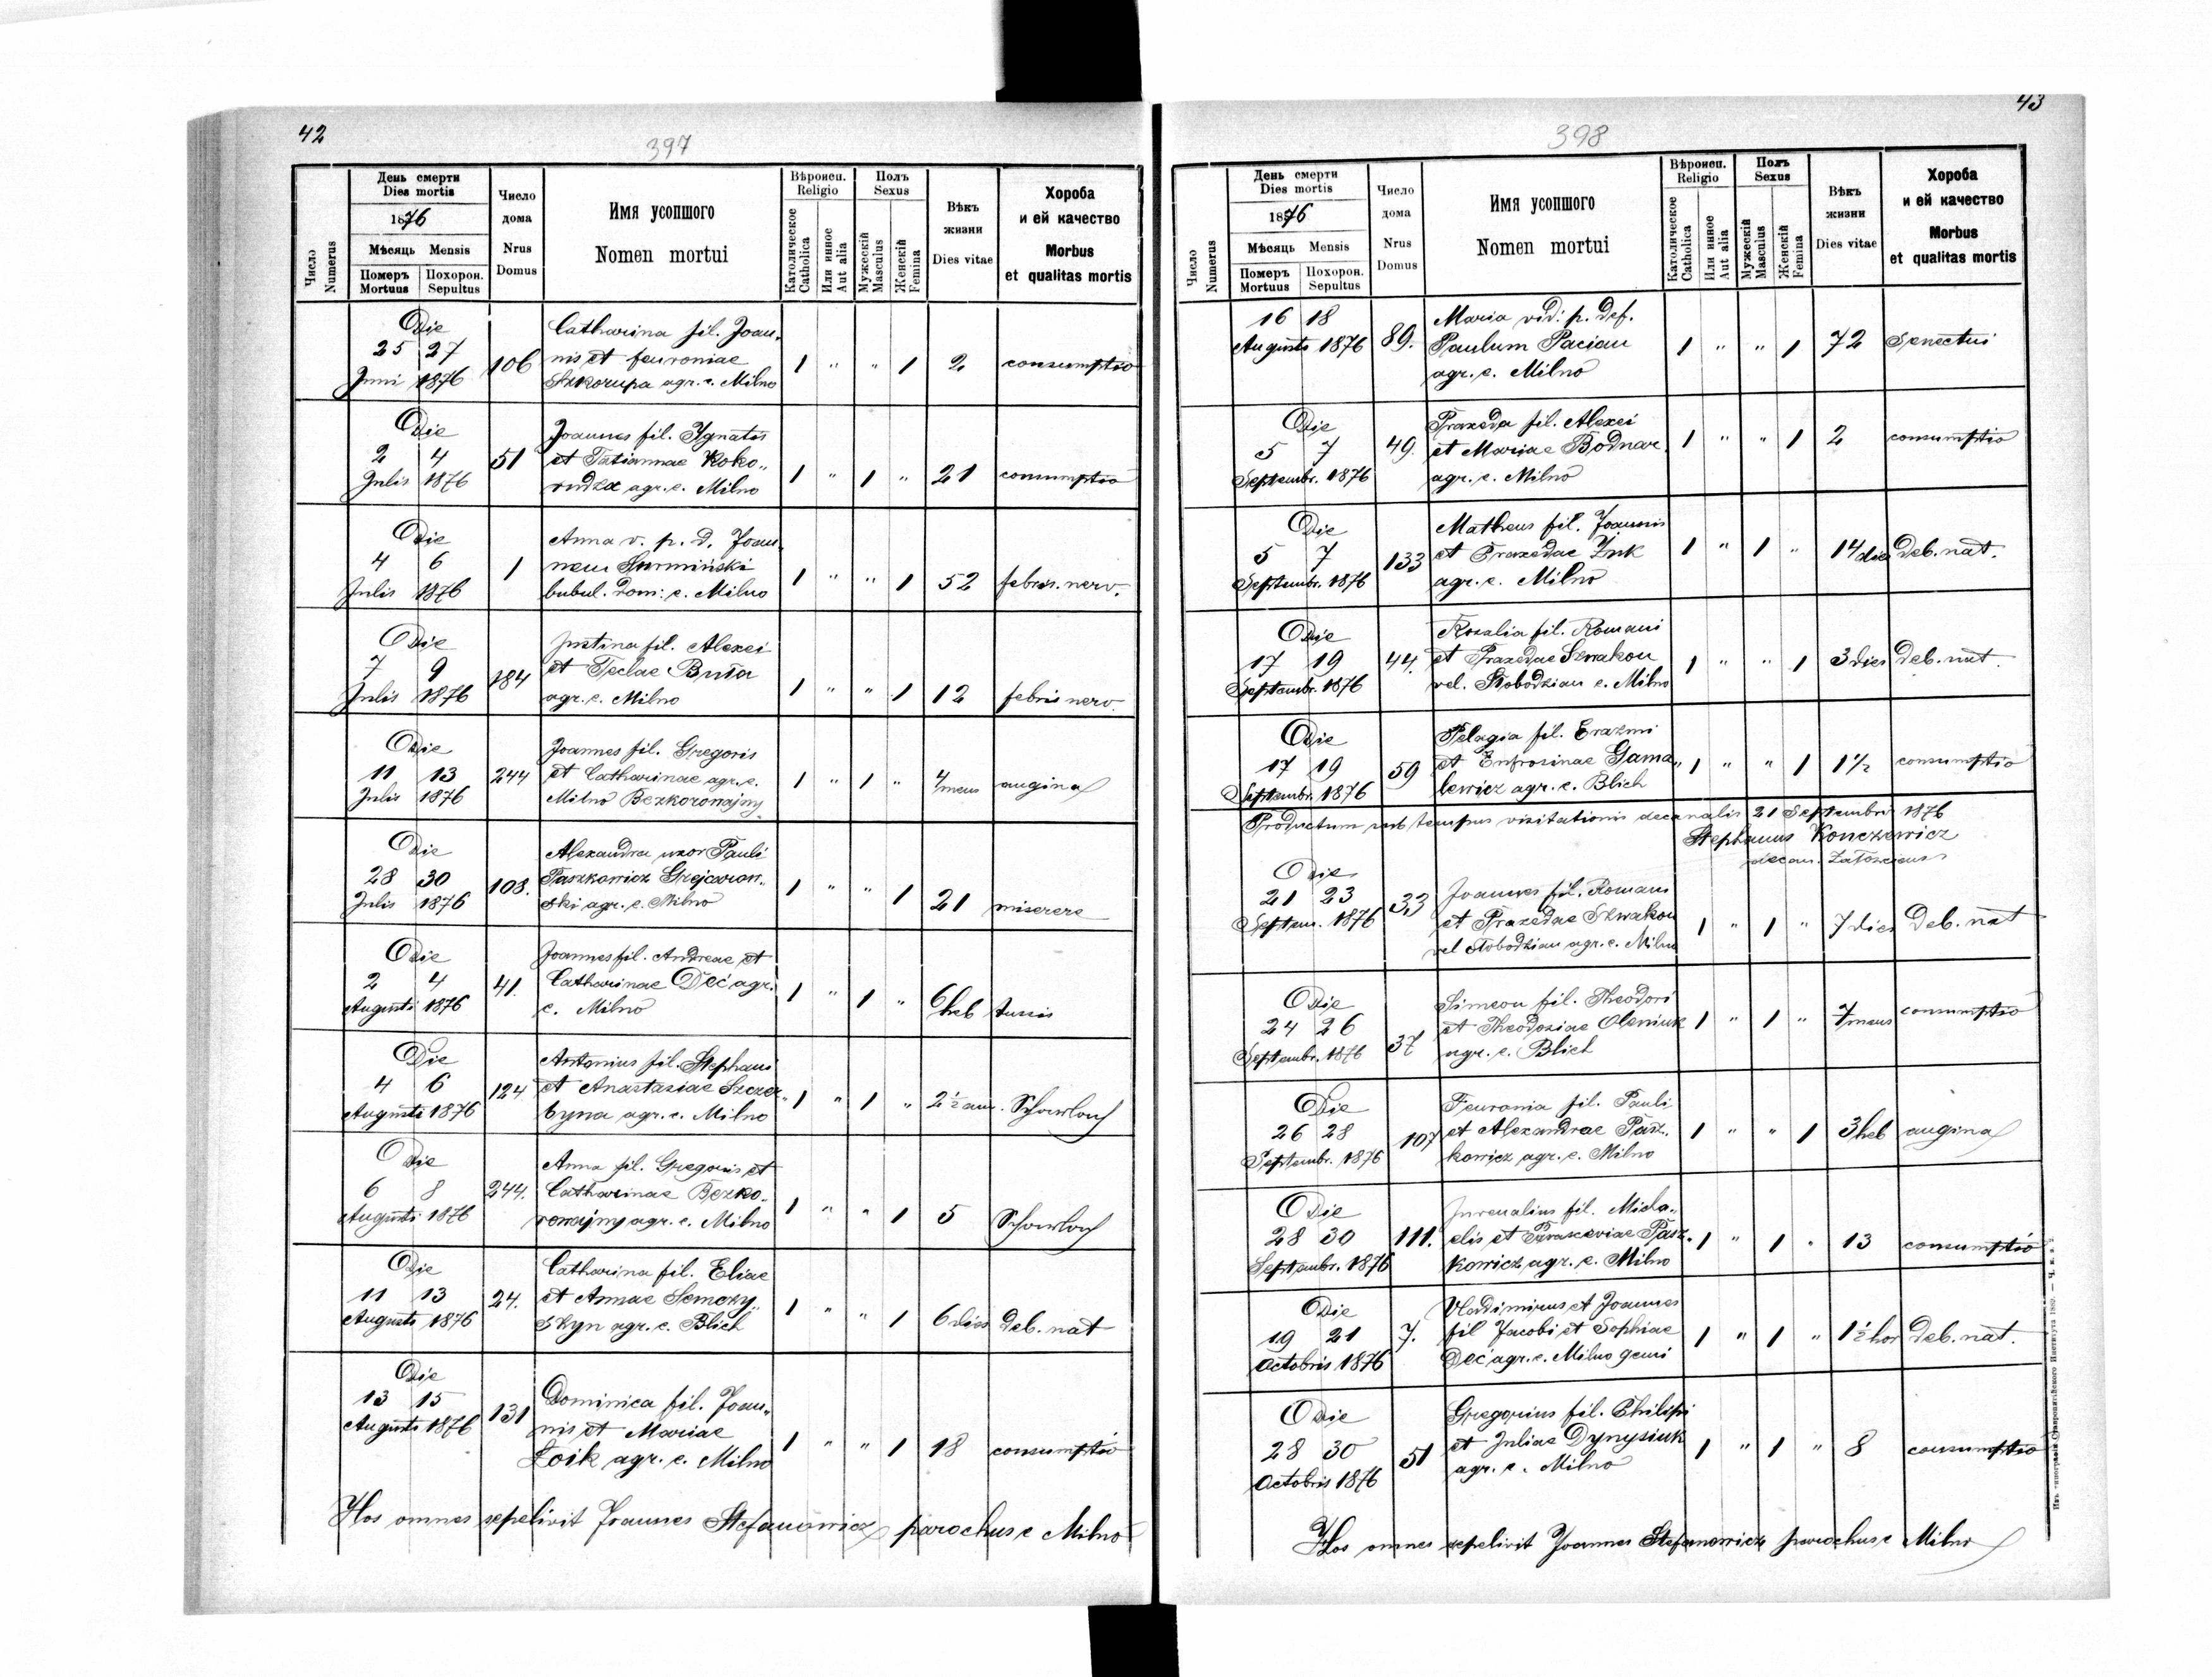 42
397
Число
Numerus
День смерти
Dies mortis
1876
Мѣсяць Mensis
Померъ
Mortuus
Похорон.
Sepultus
Число
дома
Nrus
Domus
Имя усопшого
Nomen mortui
Вѣроисп.
Religio
Католическое
Catholica
Или инное
Aut alia
Полъ
Sexus
Мужескій
Masculus
Женскій
Femina
Вѣкъ
жизни
Dies vitae
Хороба
и ей качество
Morbus
et qualitas mortis
Die
25 27
Juni 1876
106
Catharina fil. Joan„
nis et feuroniae
Szkorupa agr. c. Milno
1 " " 1 2 consumptio
Die
2 4
Julis 1876
51
Joannes fil. Ygnatis
et Tatiannae Koko„
rudza agr. c. Milno
1 " 1 " 21 consumptio
Die
4 6
Julis 1876
1
Anna v. p. d. Joan„
nem Surmiński
bubul. dom: c. Milno
1 " " 1 52 febris. nerv.
Die
7 9
Julis 1876
184
Justina fil. Alexei
et Teclae Buta
agr. c. Milno
1 " " 1 12 febris nerv.
Die
11 13
Julis 1876
244
Joannes fil. Gregoris
et Catharinae agr. c.
Milno Bezkorowajny
1 " 1 " 4 mens angina
Die
28 30
Julis 1876
108.
Alexandra uxor Pauli
Paszkowicz
ski agr. c. Milno
1 " " 1 21 miserere
Die
2 4
Augusti 1876
41.
Joannes fil. Andreae et
Catharinae Deć agr.
c. Milno
1 " 1 " 6 heb tussis
Die
4 6
Augusti 1876
124
Antonius fil. Stephani
et Anastasiae Szczer„
byna agr. c. Milno
1 " 1 " 2 ½ ann.
Die
6 8
Augusti 1876
244.
Anna fil. Gregoris et
Catharinae Bezko„
rowajny agr. c. Milno
1 " " 1 5
Die
11 13
Augusti 1876
24.
Catharina fil. Eliae
et Annae Semczy„
szyn agr. c. Blich
1 " " 1 6 dies deb. nat
Die
13 15
Augusti 1876
131
Dominica fil. Joan„
nis et Mariae
Łoik agr. c. Milno
1 " " 1 18 consumptio
Hos omnes sepelivit Joannes Stefanowicz parochus c Milno
43
398
Число
Numerus
День смерти
Dies mortis
1876
Мѣсяць Mensis
Померъ
Mortuus
Похорон.
Sepultus
Число
дома
Nrus
Domus
Имя усопшого
Nomen mortui
Вѣроисп.
Religio
Католическое
Catholica
Или инное
Aut alia
Полъ
Sexus
Мужескій
Masculus
Женскій
Femina
Вѣкъ
жизни
Dies vitae
Хороба
и ей качество
Morbus
et qualitas mortis
16 18
Augusti 1876
89.
Maria vid: p. def.
Paulum Pacian
agr. c. Milno
1 " " 1 72 Senectui
Die
5 7
Septembr. 1876
49.
Praxeda fil. Alexei
et Mariae Bodnar
agr. c. Milno
1 " " 1 2 consumptio
Die
5 7
Septembr. 1876
133
Matheus fil. Joannis
et Praxedae Żuk
agr. c. Milno
1 " 1 " 14 dies Deb. nat.
Die
17 19
Septembr. 1876
44.
Rosalia fil. Romani
et Praxedae Szwakon
vel. Słobodzian c. Milno
1 " " 1 3 dies Deb. nat.
Die
17 19
Septembr. 1876
59
Pelagia fil. Erazmi
et Eufrosinae Gama„
lewicz agr. c. Blich
1 " " 1 1 ½ consumptio
Productum sub tempus visitationis decanalis 21 Septembris 1876
Stephanus Konczewicz
decan.
Die
21 23
Septem. 1876
33
Joannes fil. Romani
et Praxedae Szwakon
vel Słobodzian agr. c. Milno
1 " 1 " 7 dies Deb. nat
Die
24 26
Septembr. 1876
37
Simeon fil. Theodori
et Theodoziae Oleniuk
agr. c. Blich
1 " 1 " 7 mens consumptio
Die
26 28
Septembr. 1876
107
Feuronia fil. Pauli
et Alexandrae Pasz„
kowicz agr. c. Milno
1 " " 1 3 heb angina
Die
28 30
Septembr. 1876
111.
Juvenalius fil. Micha„
elis et Parasceviae Pasz„
kowicz agr. c. Milno
1 " 1 " 13 consumptio
Die
19 21
Octobris 1876
7.
Vladimirus et Joannes
fil Jacobi et Sophiae
Deć agr. c. Milno gemi
1 " 1 " 1 ½ hor Deb. nat.
Die
28 30
Octobris 1876
51
Gregorius fil. Philipi
et Juliae Dynysiuk
agr. c. Milno
1 " 1 " 8 consumptio
Hos omnes sepelivit Joannes Stefanowicz parochus c Milno
Изъ типографіи Ставропигійского Института